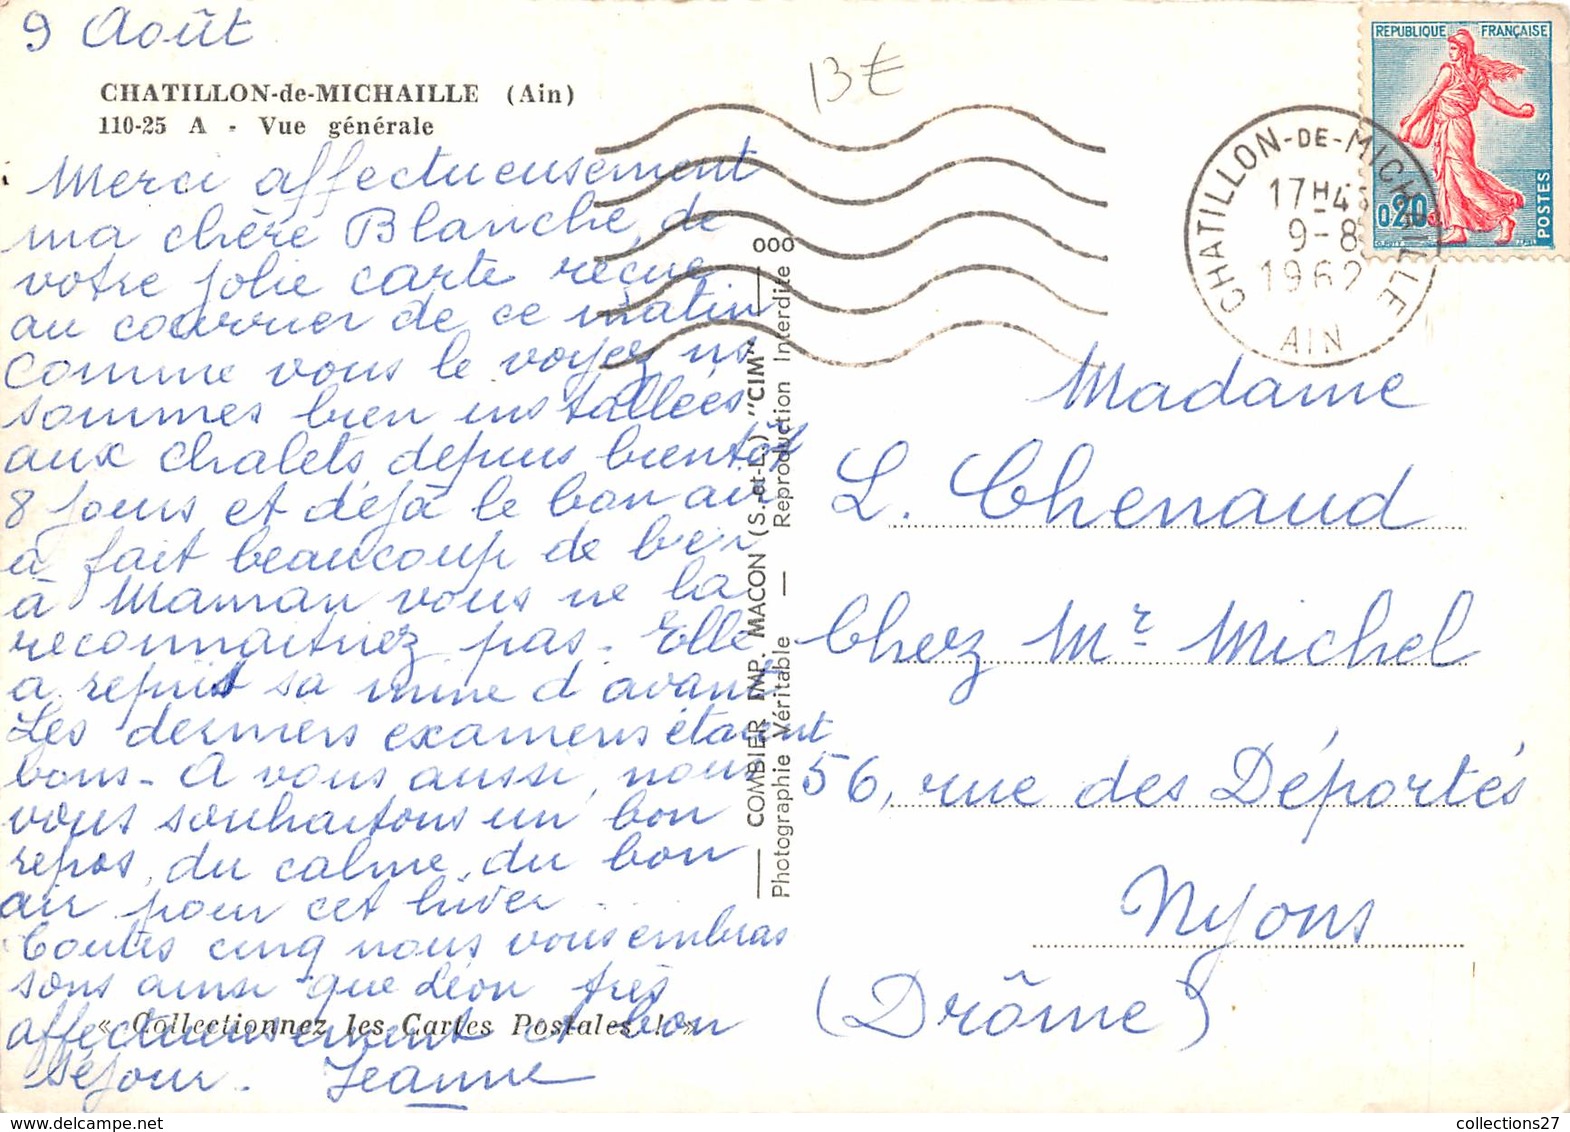 9 Août
CHATILLON-de-MICHAILLE (Ain)
110-25 A - Vue générale
Merci affectueusement
ma chère Blanche, de
votre jolie carte reçue
au courrier de ce matin
Comme vous le voyez ns
sommes bien installées
aux chalets depuis bientôt
8 jours et déjà le bon air
a fait beaucoup de bien
à Maman vous ne la
reconnaitriez pas. Elle
a repris sa mine d'avant
Les derniers examens étaient
bons - A vous aussi, nous
vous souhaitons un bon
repos, du calme, du bon
air pour cet hiver ...
Toutes cinq nous vous embras
sons ainsi que Léon très
affectueusement et bon
séjour. Jeanne
« Collectionnez les Cartes Postales ! »
COMBIER IMP. MACON (S.-et-L.) "CIM"
Photographie Véritable — Reproduction Interdite
13€
CHATILLON-DE-MICHAILLE
17H45
9-8
1962
AIN
REPUBLIQUE FRANÇAISE
0,20
POSTES
Madame
L. Chenaud
Chez Mr Michel
56, rue des Déportés
Nyons
(Drôme)
collections27